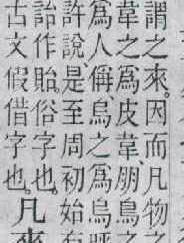 謂之來。因而凡物之
韋之爲皮韋、朋鳥之
爲人偁烏之爲烏呼
許說是至周初始有
詒作貽俗字也。凡來
古文假借字也。